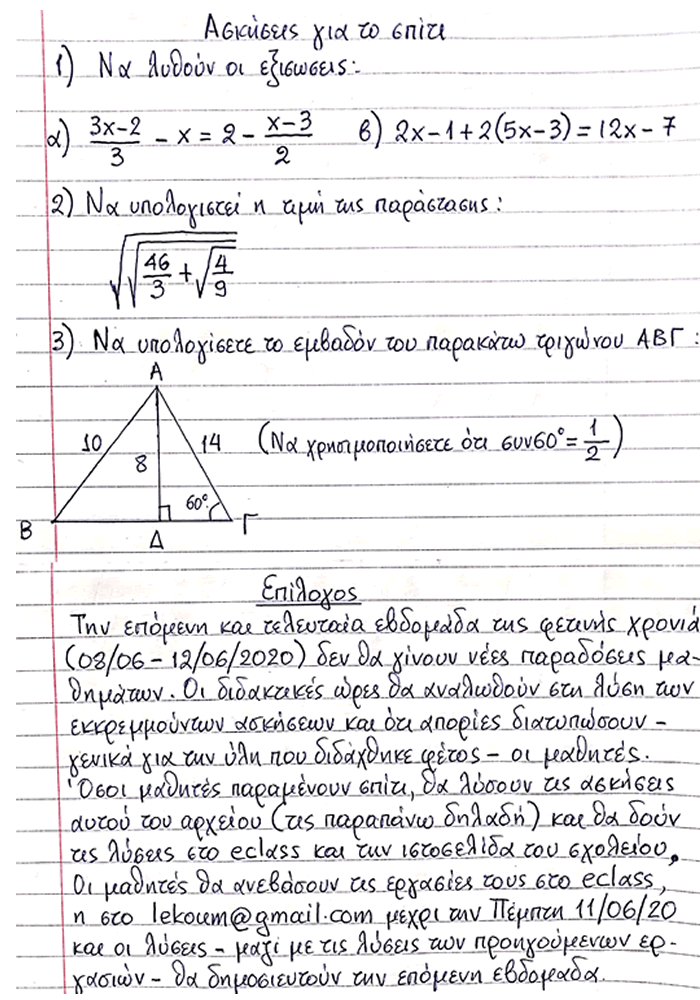 Ασκήσεις για το σπίτι
1) Να λυθούν οι εξισώσεις:
α) (3x-2)/3 - x = 2 - (x-3)/2 β) 2x-1+2(5x-3)=12x-7
2) Να υπολογιστεί η τιμή της παράστασης:
√√(46/3 + √(4/9))
3) Να υπολογίσετε το εμβαδόν του παρακάτω τριγώνου ΑΒΓ:
Α
10 8 14 (Να χρησιμοποιήσετε ότι συν60°=1/2)
60°
Β Δ Γ
Επίλογος
Την επόμενη και τελευταία εβδομάδα της φετινής χρονιά
(08/06-12/06/2020) δεν θα γίνουν νέες παραδόσεις μα-
θημάτων. Οι διδακτικές ώρες θα αναλωθούν στη λύση των
εκκρεμμούντων ασκήσεων και ότι απορίες διατυπώσουν -
γενικά για την ύλη που διδάχθηκε φέτος - οι μαθητές.
Όσοι μαθητές παραμένουν σπίτι, θα λύσουν τις ασκήσεις
αυτού του αρχείου (τις παραπάνω δηλαδή) και θα δούν
τις λύσεις στο eclass και την ιστοσελίδα του σχολείου.
Οι μαθητές θα ανεβάσουν τις εργασίες τους στο eclass,
η στο lekoum@gmail.com μεχρι την Πέμπτη 11/06/20
και οι λύσεις - μαζί με τις λύσεις των προηγούμενων ερ-
γασιών - θα δημοσιευτούν την επόμενη εβδομάδα.